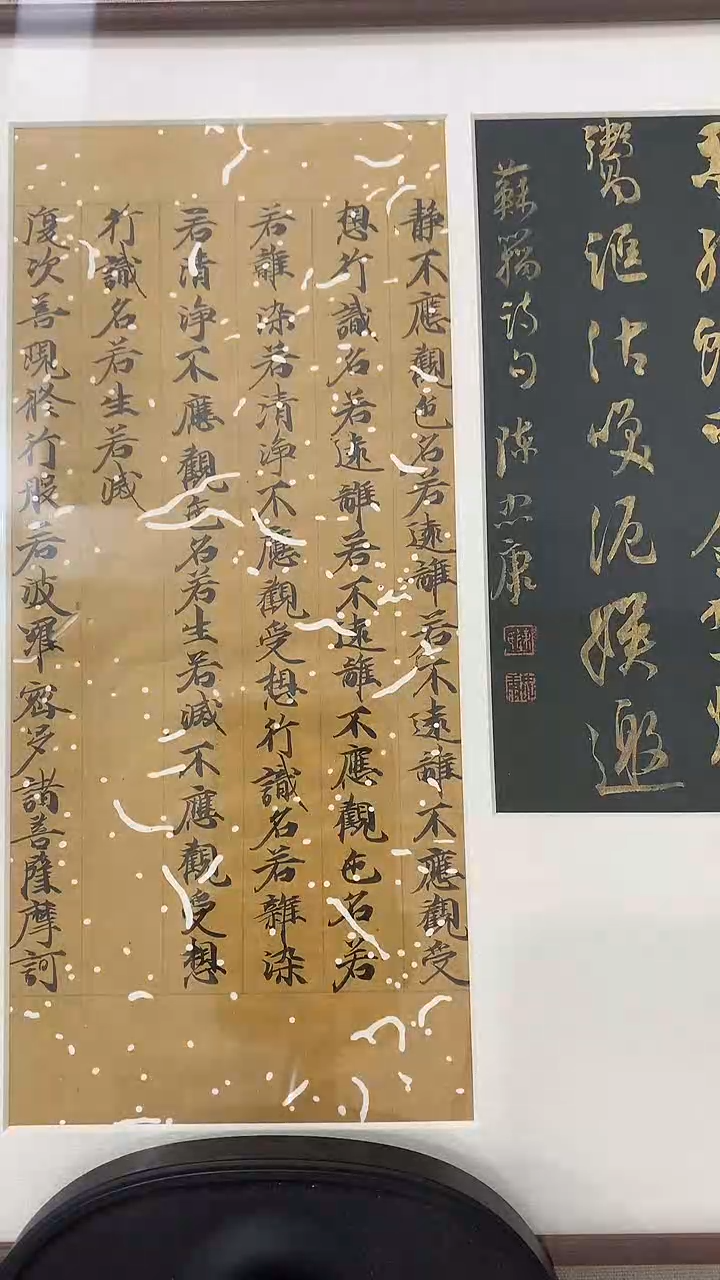 沽喚泥
邀
蘇籀诗句 陈忠康
静不應觀色名若遠離若不遠離不應觀受
想行識名若遠離若不遠離不應觀色名若
若雜染若清淨不應觀受想行識名若雜染
若清淨不應觀色名若生若滅不應觀受想
行識名若生若滅
復次善現修行般若波羅密多諸菩薩摩訶